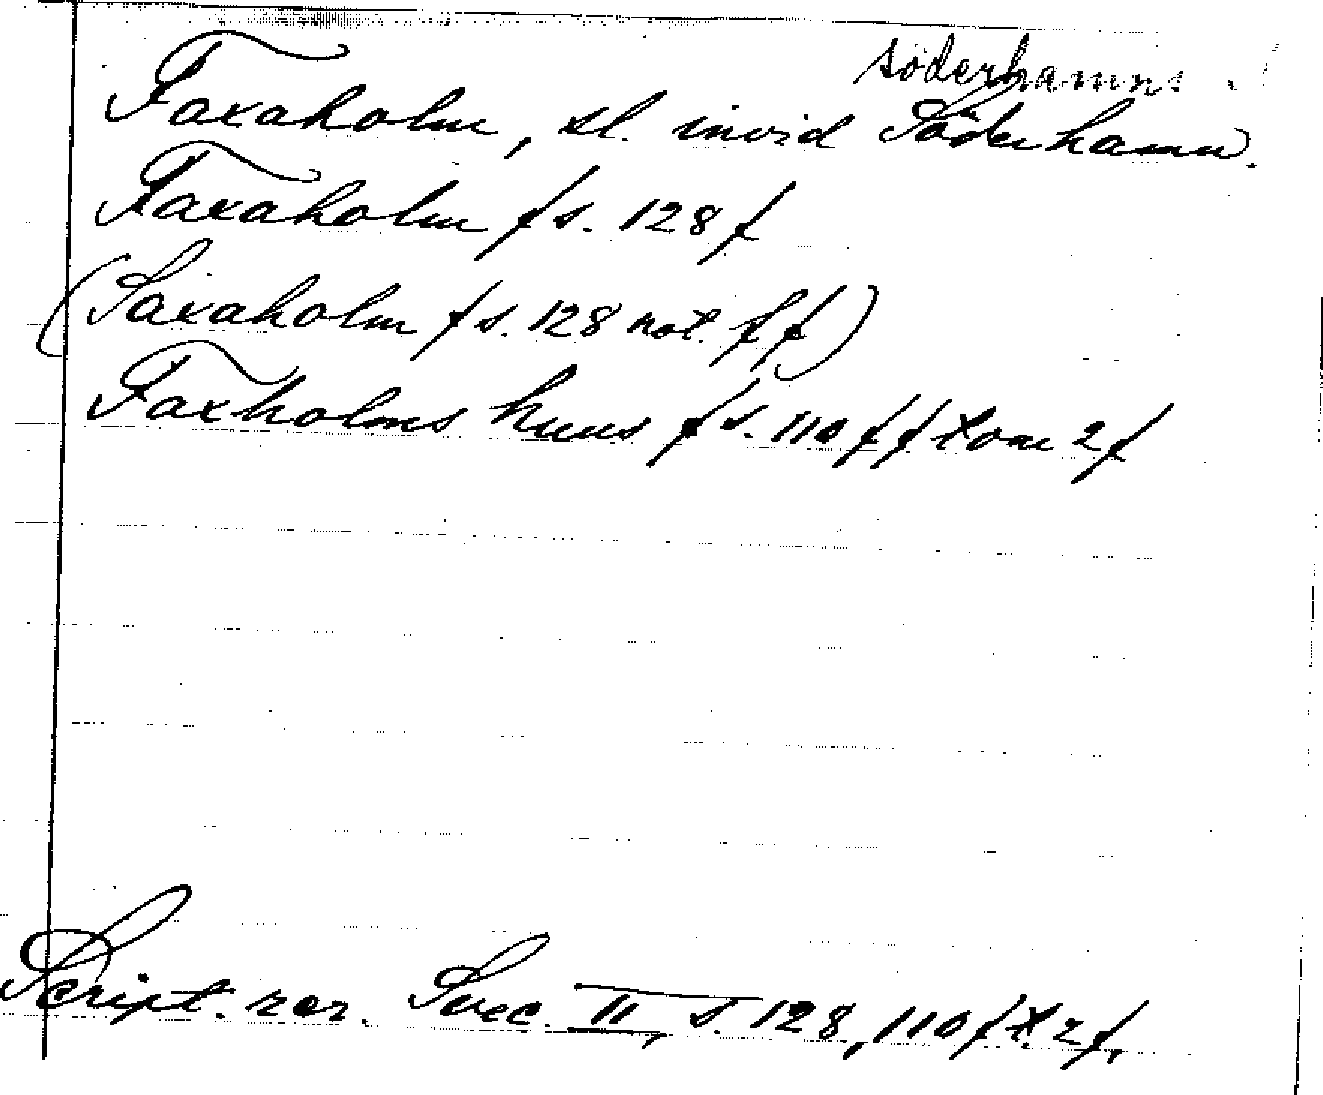 Söderhamns
Faxaholm, sl. invid Söderhamn.
Faxaholm f s. 128 f
(Saxaholm f s. 128 not. ff)
Faxholms huus f s. 110 ff t om 2 f
Script. rer. Svec. II, s. 128, 110 f t. 2 f.